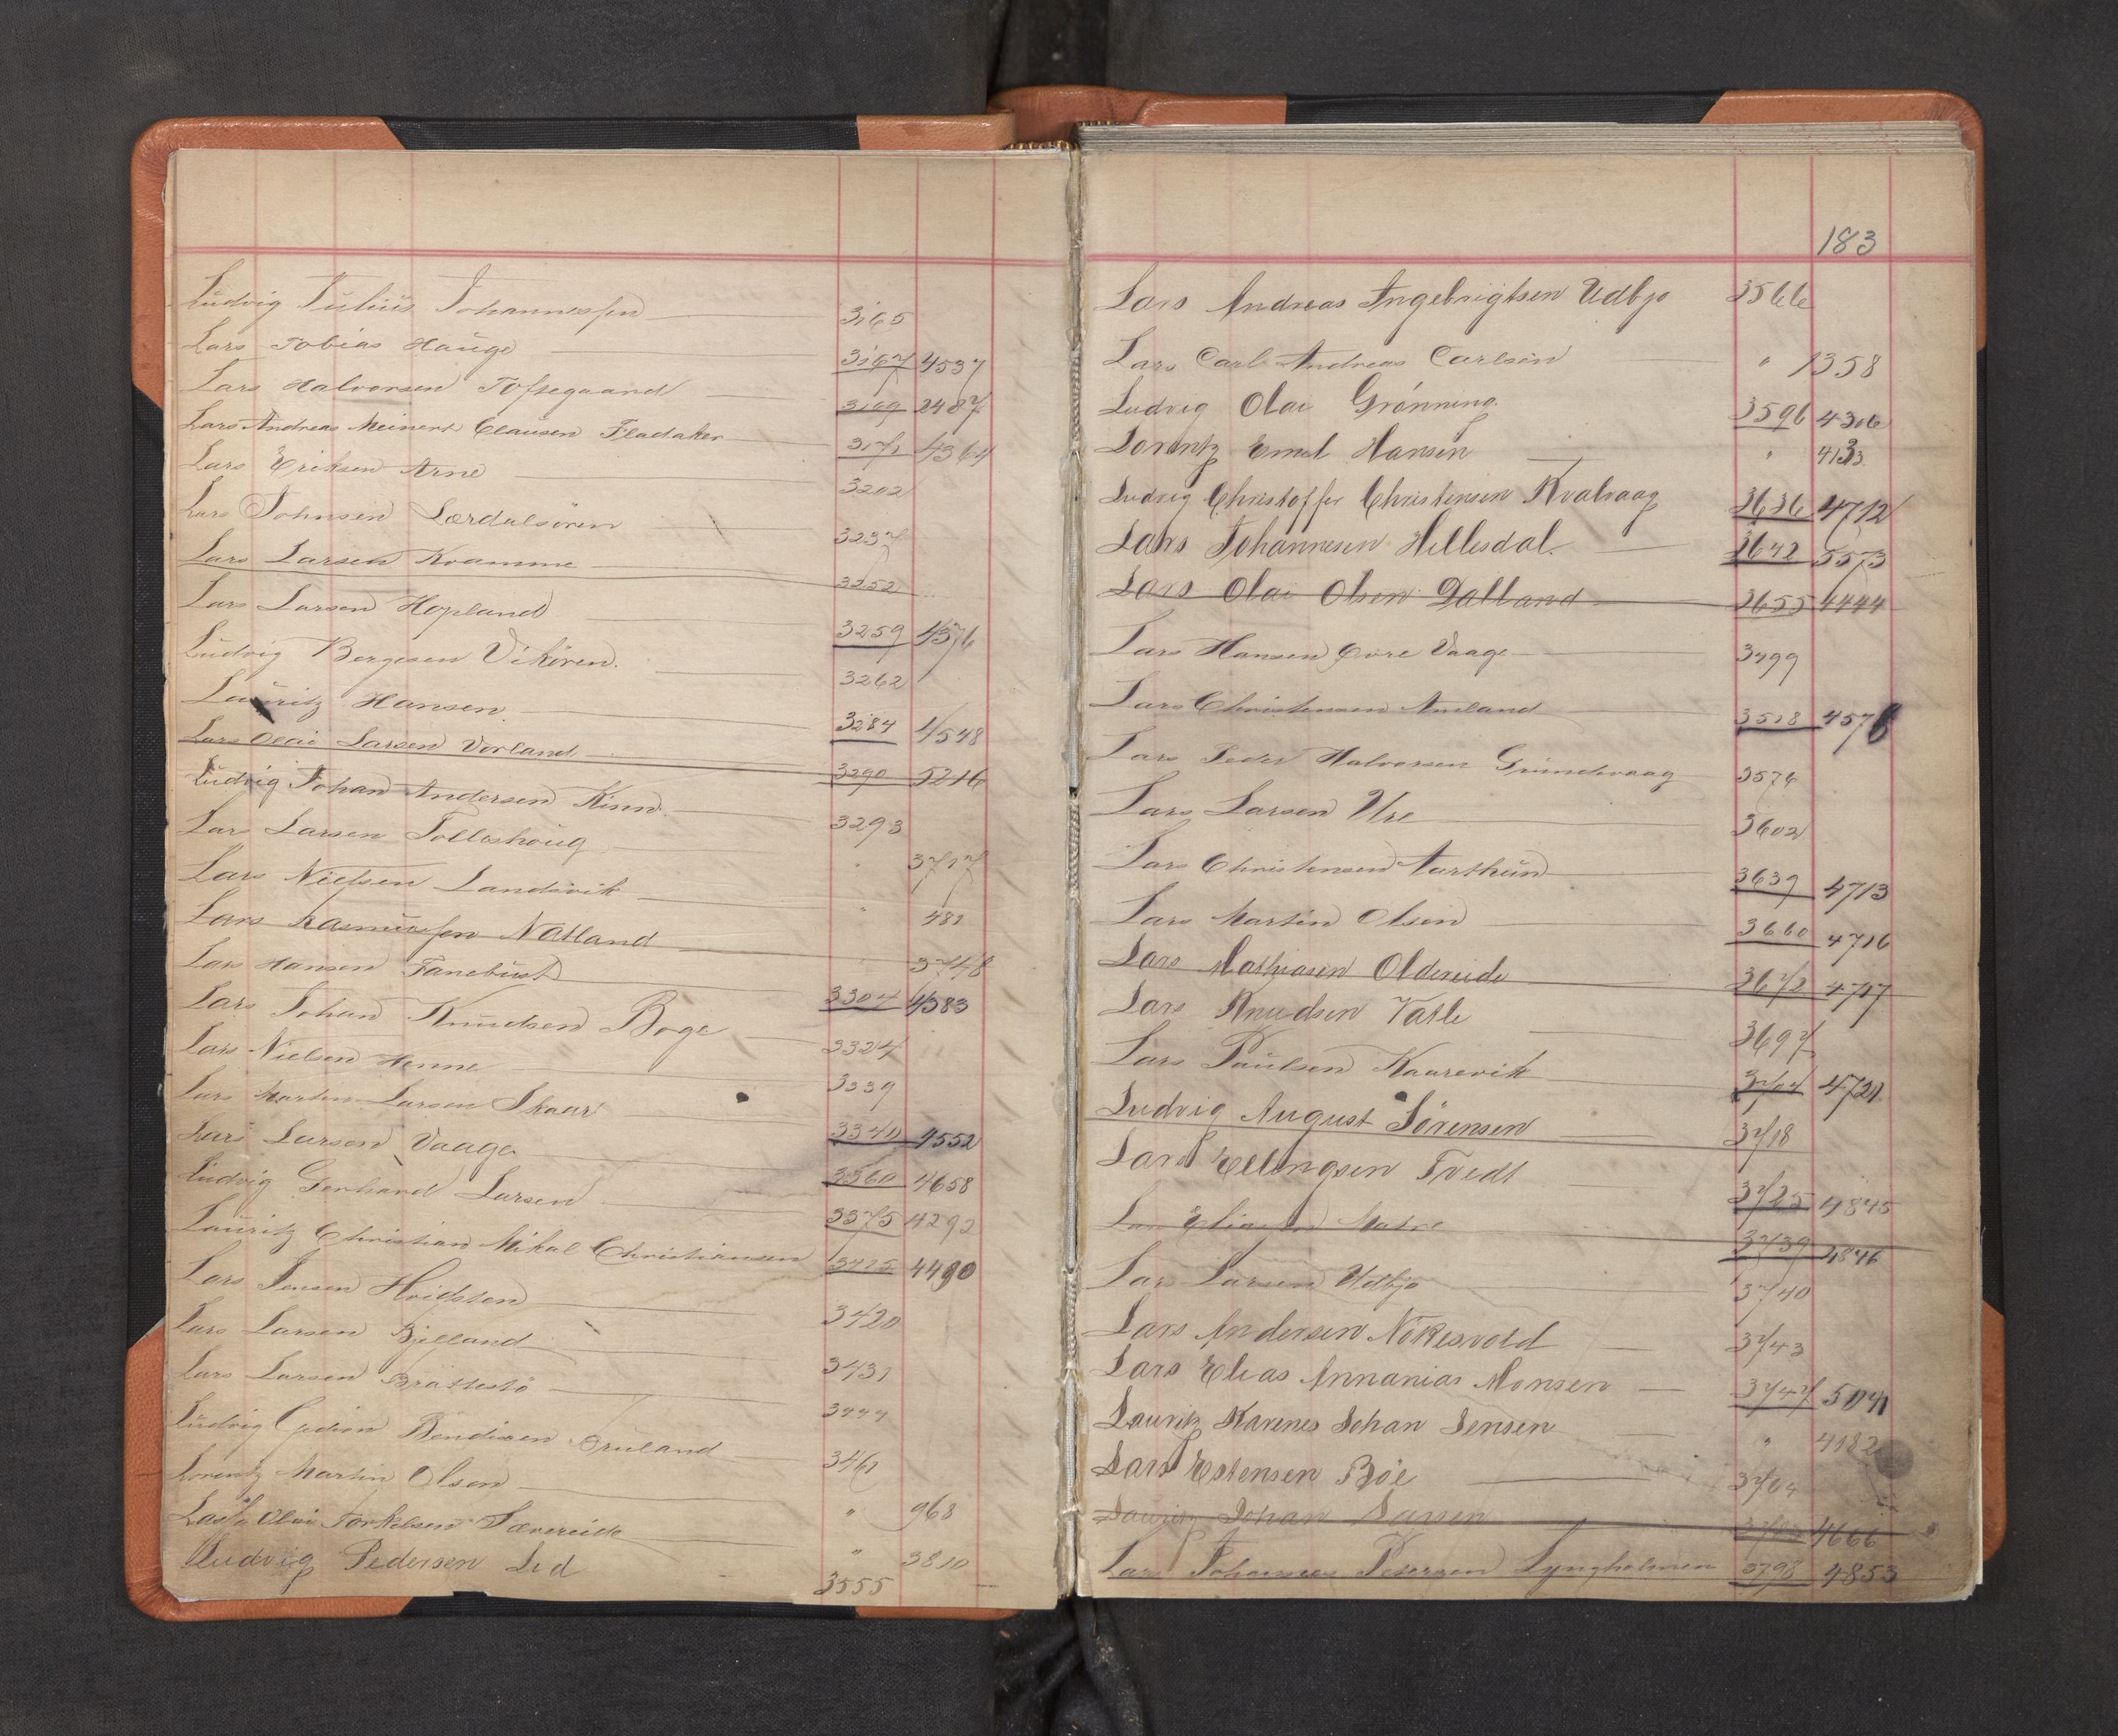 Ludvig Julius Johannesen 3165
Lars Tobias Hauge 3167 4537
Lars Halvorsen Toftegaard 3169 2487
Lars Andreas Meinert Clausen Fladaker 3171 4364
Lars Eriksen Arne 3202
Lars Johnsen Lærdalsören 3237
Lars Larsen Kvamme 3252
Lars Larsen Hopland 3259 4576
Ludvig Børgesen Vikören 3262
Lauritz Hansen 3284 4548
Lars Olai Larsen Vorland 3290 5216
Ludvig Johan Andersen Kinn 3293
Lars Larsen Tolleshoug " 3717
Lars Nielsen Landsvik " 481
Lars Rasmussen Natland 3748
Lars Hansen Fanebust 3304 4383
Lars Johan Knudsen Boge 3324
Lars Nielsen Henne 3339
Lars Martin Larsen Skaar 3340 4552
Lars Larsen Vaage 3360 4658
Ludvig Gerhard Larsen 3375 4292
Lauritz Christian Mikal Christiansen 3425 4490
Lars Jensen Hvidsten 3420
Lars Larsen Bjelland 3431
Lars Larsen Brattestø 3444
Ludvig Gedion Bendixen 3461
Lorentz Martin Olsen " 963
Olai Torkelsen Sævereide " 3810
Ludvig Pedersen Lid 3555
183
Lars Andreas Ingebrigtsen Udbjo 3566
Lars Carl Andreas Carlsen " 1358
Ludvig Olai Grønning 3596 4306
Lorentz Emil Hansen " 4133
Ludvig Christoffer Christensen Kvalvaag 3636 4712
Lars Johannesen Hillesdal 3642 5573
Lars Olai Olsen Dalland 3655 4444
Lars Hansen Øvre Vaage 3499
Lars Christensen Amland 3528 4576
Lars Peder Halvorsen Grundevaag 3574
Lars Larsen Ure 3602
Lars Christensen Aarthun 3639 4713
Lars Martin Olsen 3660 4716
Lars Mathiasen Oldereide 3672 4717
Lars Knudsen Vatle 3697
Lars Paulsen Kaarevik 3704 4721
Ludvig August Sørensen 3718
Lars Ellingsen Tvedt 3725 4845
Lars Eliasen Matre 3739 4846
Lars Larsen Udbjo 3740
Lars Andersen Nökesvold 3743
Lars Elias Annanias Monsen 3747 5041
Lauritz Karenes Johan Jensen " 4182
Lars Estensen Böe 3764
Lauritz Johan Larsen 4666
Lars Johannes Petersen Lyngholmen 3798 4853